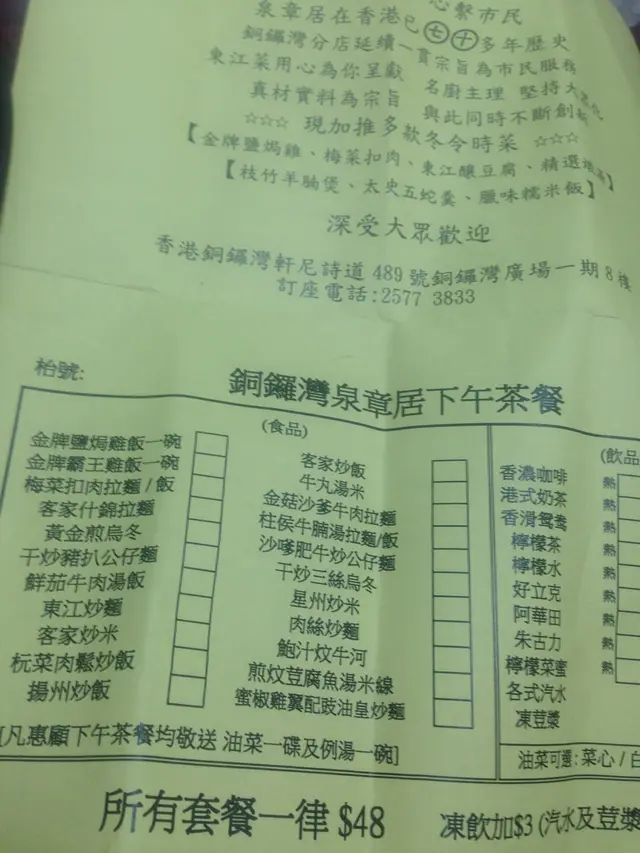 心繫市民
泉章居在香港已七十多年歷史
銅鑼灣分店延續一貫宗旨為市民服務
東江菜用心為你呈獻 名廚主理 堅持大眾化
真材實料為宗旨 與此同時不斷創新
☆☆☆ 現加推多款冬令時菜 ☆☆☆
【金牌鹽焗雞、梅菜扣肉、東江釀豆腐、精選
【枝竹羊腩煲、太史五蛇羹、臘味糯米飯】
深受大眾歡迎
香港銅鑼灣軒尼詩道489號銅鑼灣廣場一期8樓
訂座電話:2577 3833
枱號:
銅鑼灣泉章居下午茶餐
(食品)
金牌鹽焗雞飯一碗
金牌霸王雞飯一碗
梅菜扣肉拉麵/飯
客家什錦拉麵
黃金煎烏冬
干炒豬扒公仔麵
鮮茄牛肉湯飯
東江炒麵
客家炒米
杬菜肉鬆炒飯
揚州炒飯
客家炒飯
牛丸湯米
金菇沙爹牛肉拉麵
柱侯牛腩湯拉麵/飯
沙嗲肥牛炒公仔麵
干炒三絲烏冬
星州炒米
肉絲炒麵
鮑汁炆牛河
煎炆荳腐魚湯米線
蜜椒雞翼配豉油皇炒麵
(飲品
香濃咖啡 熱
港式奶茶 熱
香滑鴛鴦 熱
檸檬茶 熱
檸檬水 熱
好立克 熱
阿華田 熱
朱古力 熱
檸檬菜蜜 熱
各式汽水
凍荳漿
[凡惠顧下午茶餐均敬送 油菜一碟及例湯一碗]
油菜可選: 菜心 / 白
所有套餐一律 $48
凍飲加$3 (汽水及荳漿